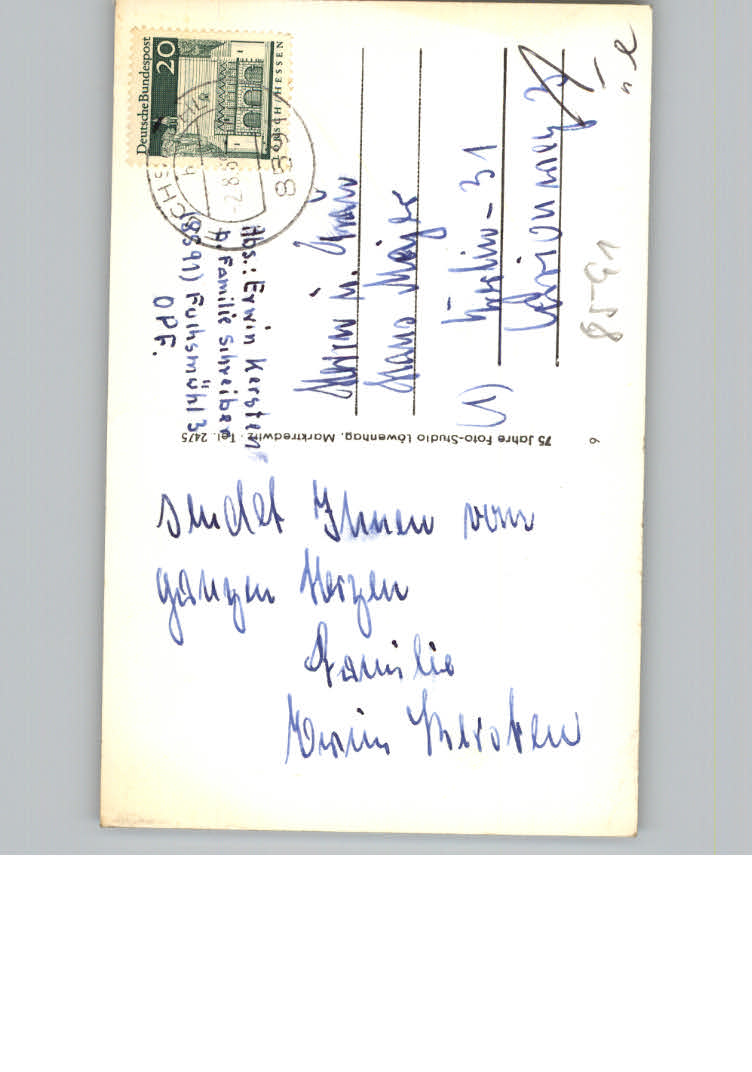 Deutsche Bundespost
20
LORSCH / HESSEN
8591
Abs.: Erwin Kersten
b. Familie Schreiber
(8591) Fuchsmühl 3
OPF.
Herrn u. Frau
Hans
(1) Berlin - 31
75 Jahre Foto-Studio Löwenhag, Marktredwitz · Tel. 2475
6
sendet Ihnen von
ganzen Herzen
Familie
Erwin Kersten